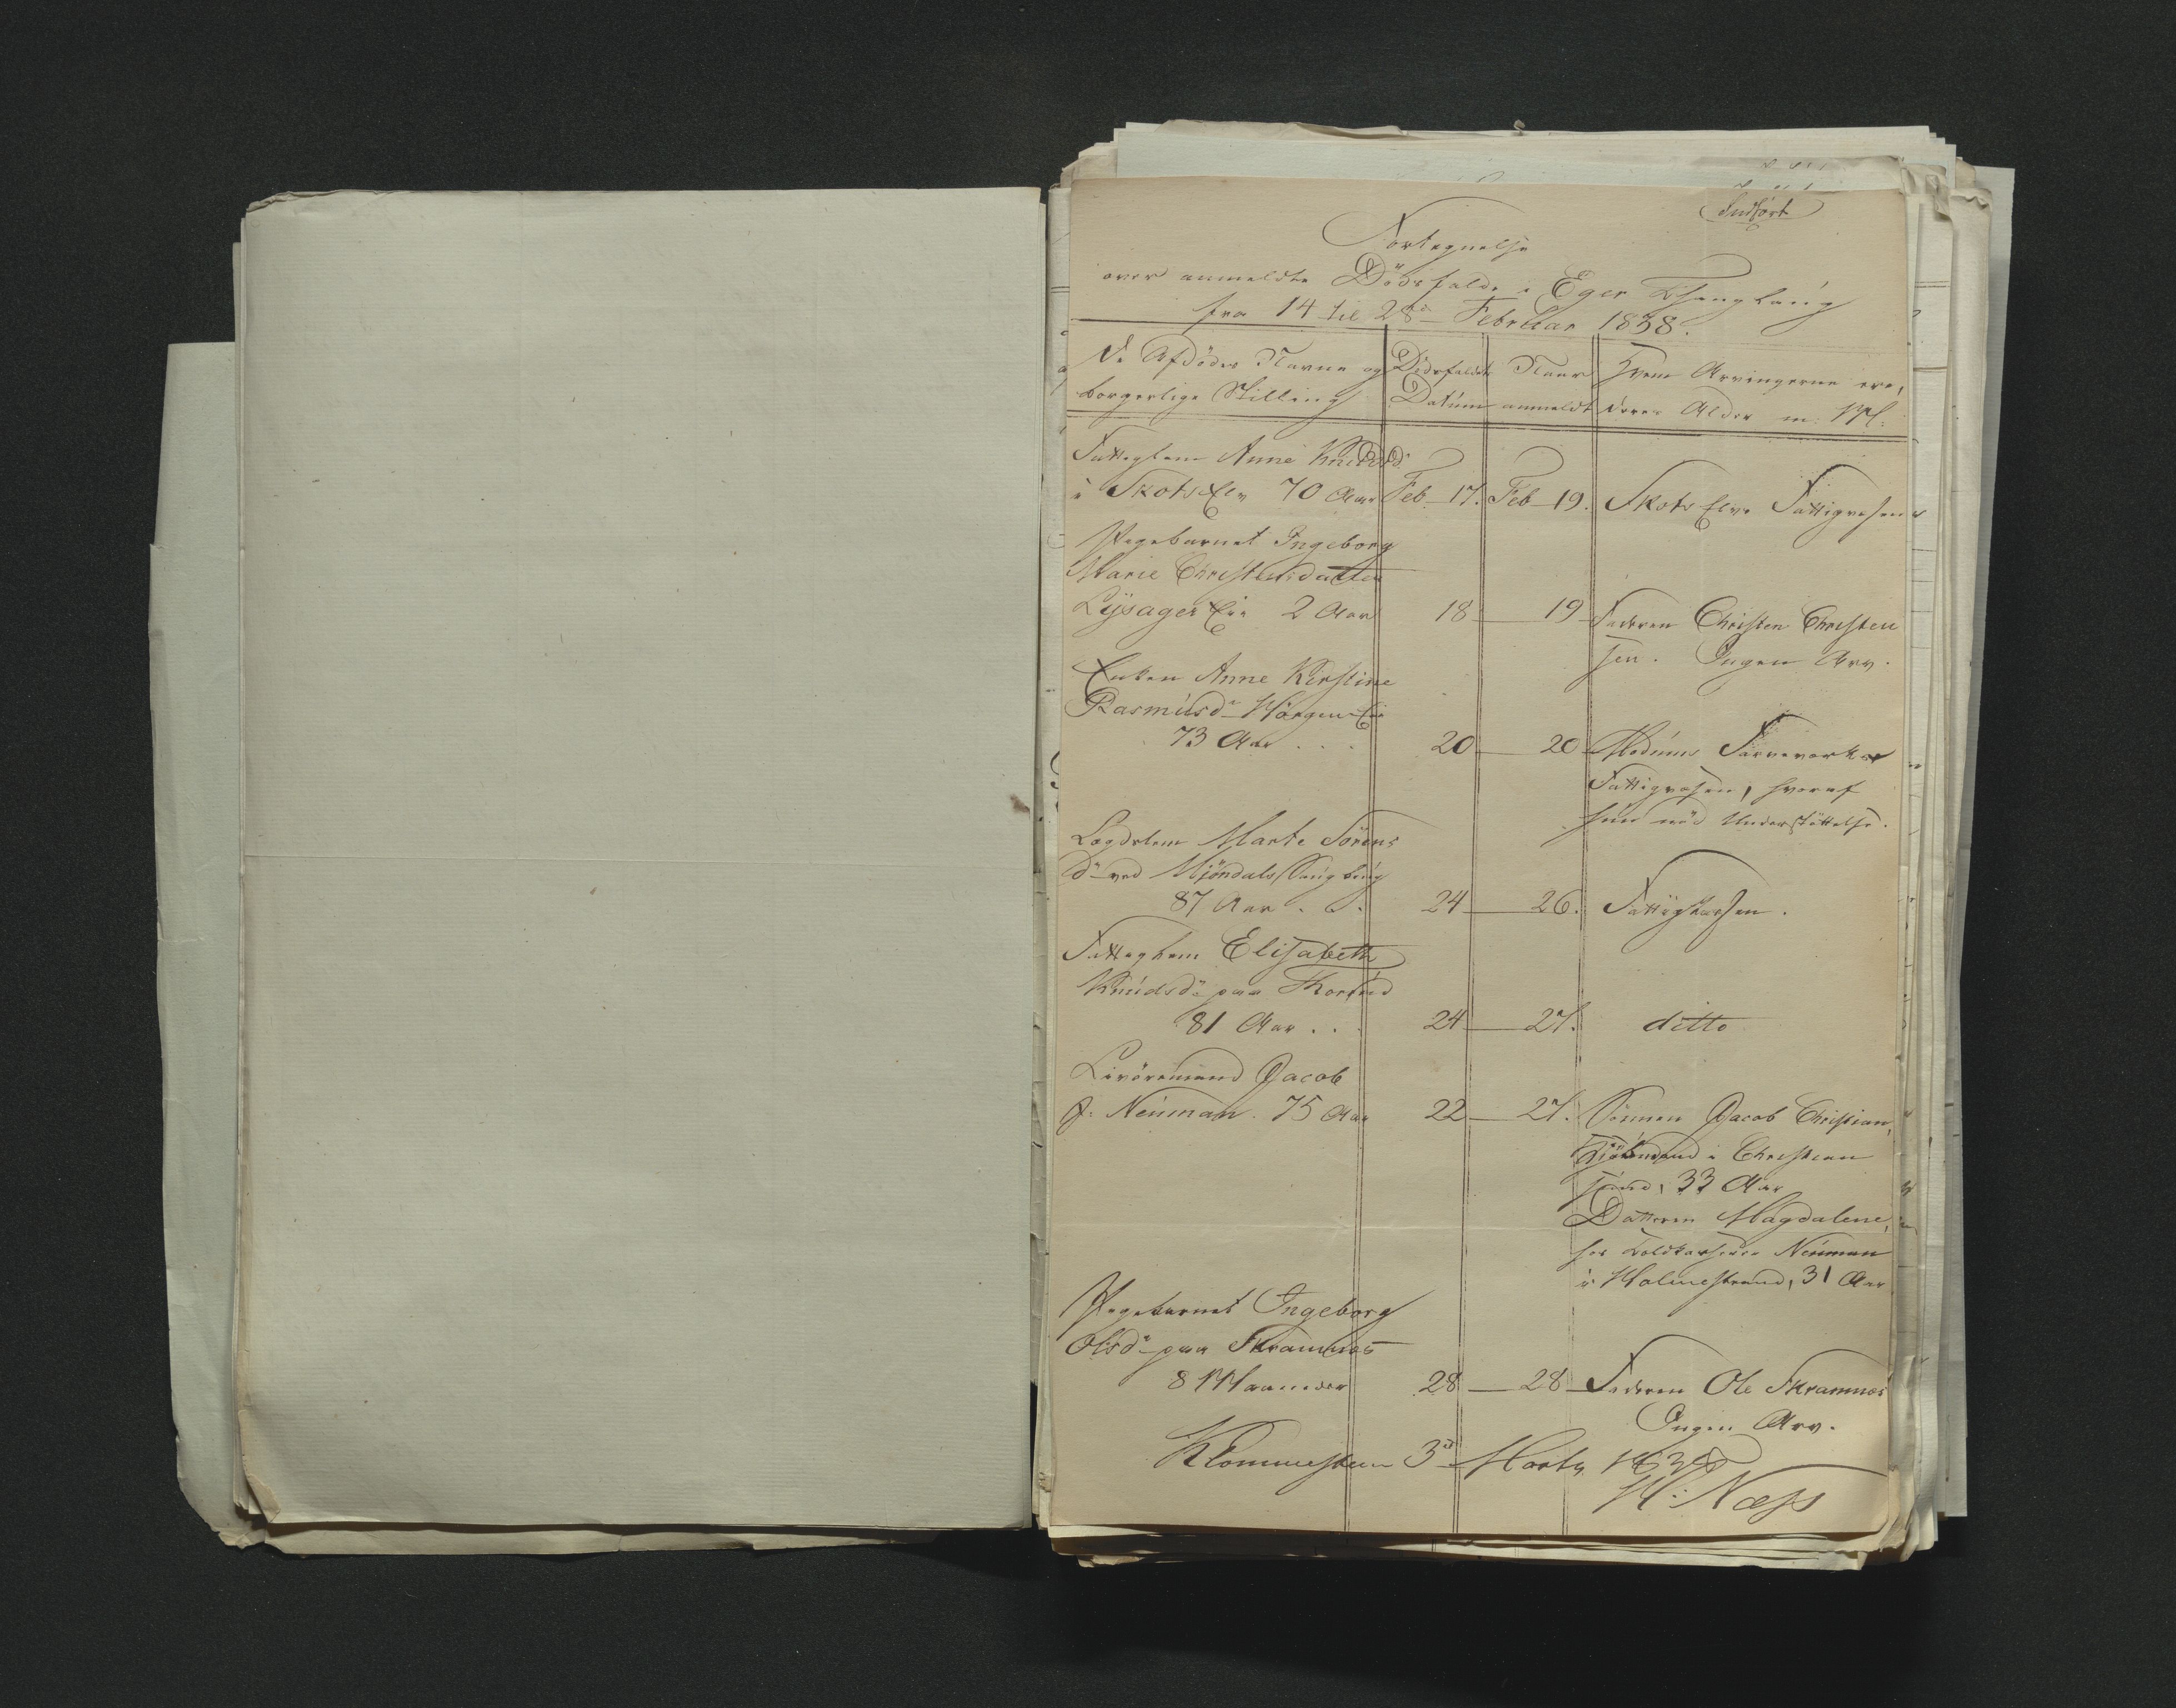 Indført
Fortegnelse
over anmeldte Dödsfald i Eger Thinglaug
fra 14 til 28d Februar 1838.
De Afdödes Navne og borgerlige Stilling
Dödsfaldets Datum
Naar anmeldt
Hvem Arvingerne ere, deres Alder m: M:
Fattiglem Anne Knudsd:
i Skots Elv 70 Aar Feb. 17. Feb 19. Skots Elvs Fattigvæsen
Pigebarnet Ingeborg
Marie Christensdatter
Lysager Eie 2 Aar 18 19 Faderen Christen Christen
sen. Ingen Arv.
Enken Anne Kirstine
Rasmusdr Horgen Eie
73 Aar . . . 20 20 Modums Farveverks
Fattigvæsen, hvoraf
hun nöd Understöttelse.
Lægdslem Marte Sörens
dr ved Mjöndals Saugbrug
87 Aar . . . 24 26. Fattigkassen.
Fattiglem Elisabeth
Knudsdr paa
81 Aar . . . 24 27. ditto
Jacob
J: Neuman. 75 Aar 22 27. Sönnen Jacob Christian,
Kjöbmand i Christian
sund, 33 Aar
Datteren Magdalene,
hos Toldkasserer Neuman
i Holmestrand, 31 Aar
Pigebarnet Ingeborg
Olsdr paa Skramnes
8 Maaneder 28 28 Faderen Ole Skramnes
Ingen Arv.
Klommesteen 3d Marts 1838
H: Næss